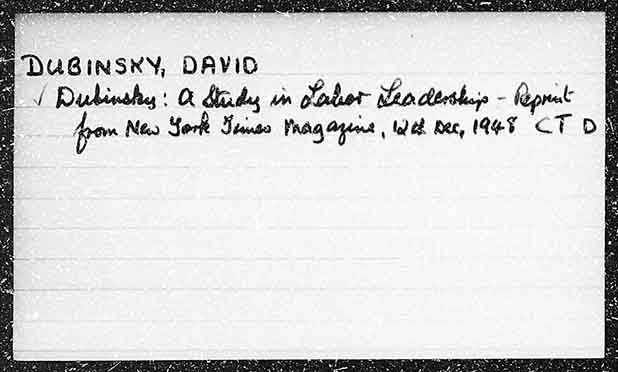 DUBINSKY, DAVID
✓ Dubinsky: A Study in Labor Leadership - Reprint
from New York Times Magazine, 12th Dec, 1948 CT D